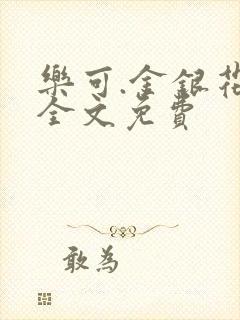 樂可.金銀花
全文免費
敢為